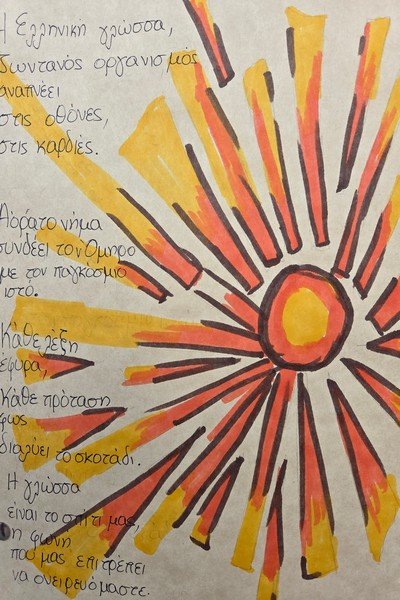 Η Ελληνική γλώσσα,
ζωντανός οργανισμός
αναπνέει
στις οθόνες,
στις καρδιές.
Αόρατο νήμα
συνδέει τον Όμηρο
με τον παγκόσμιο
ιστό.
Κάθε λέξη
γέφυρα,
κάθε πρόταση
φως
διαλύει το σκοτάδι.
Η γλώσσα
είναι το σπίτι μας,
η φωνή
που μας επιτρέπει
να ονειρευόμαστε.